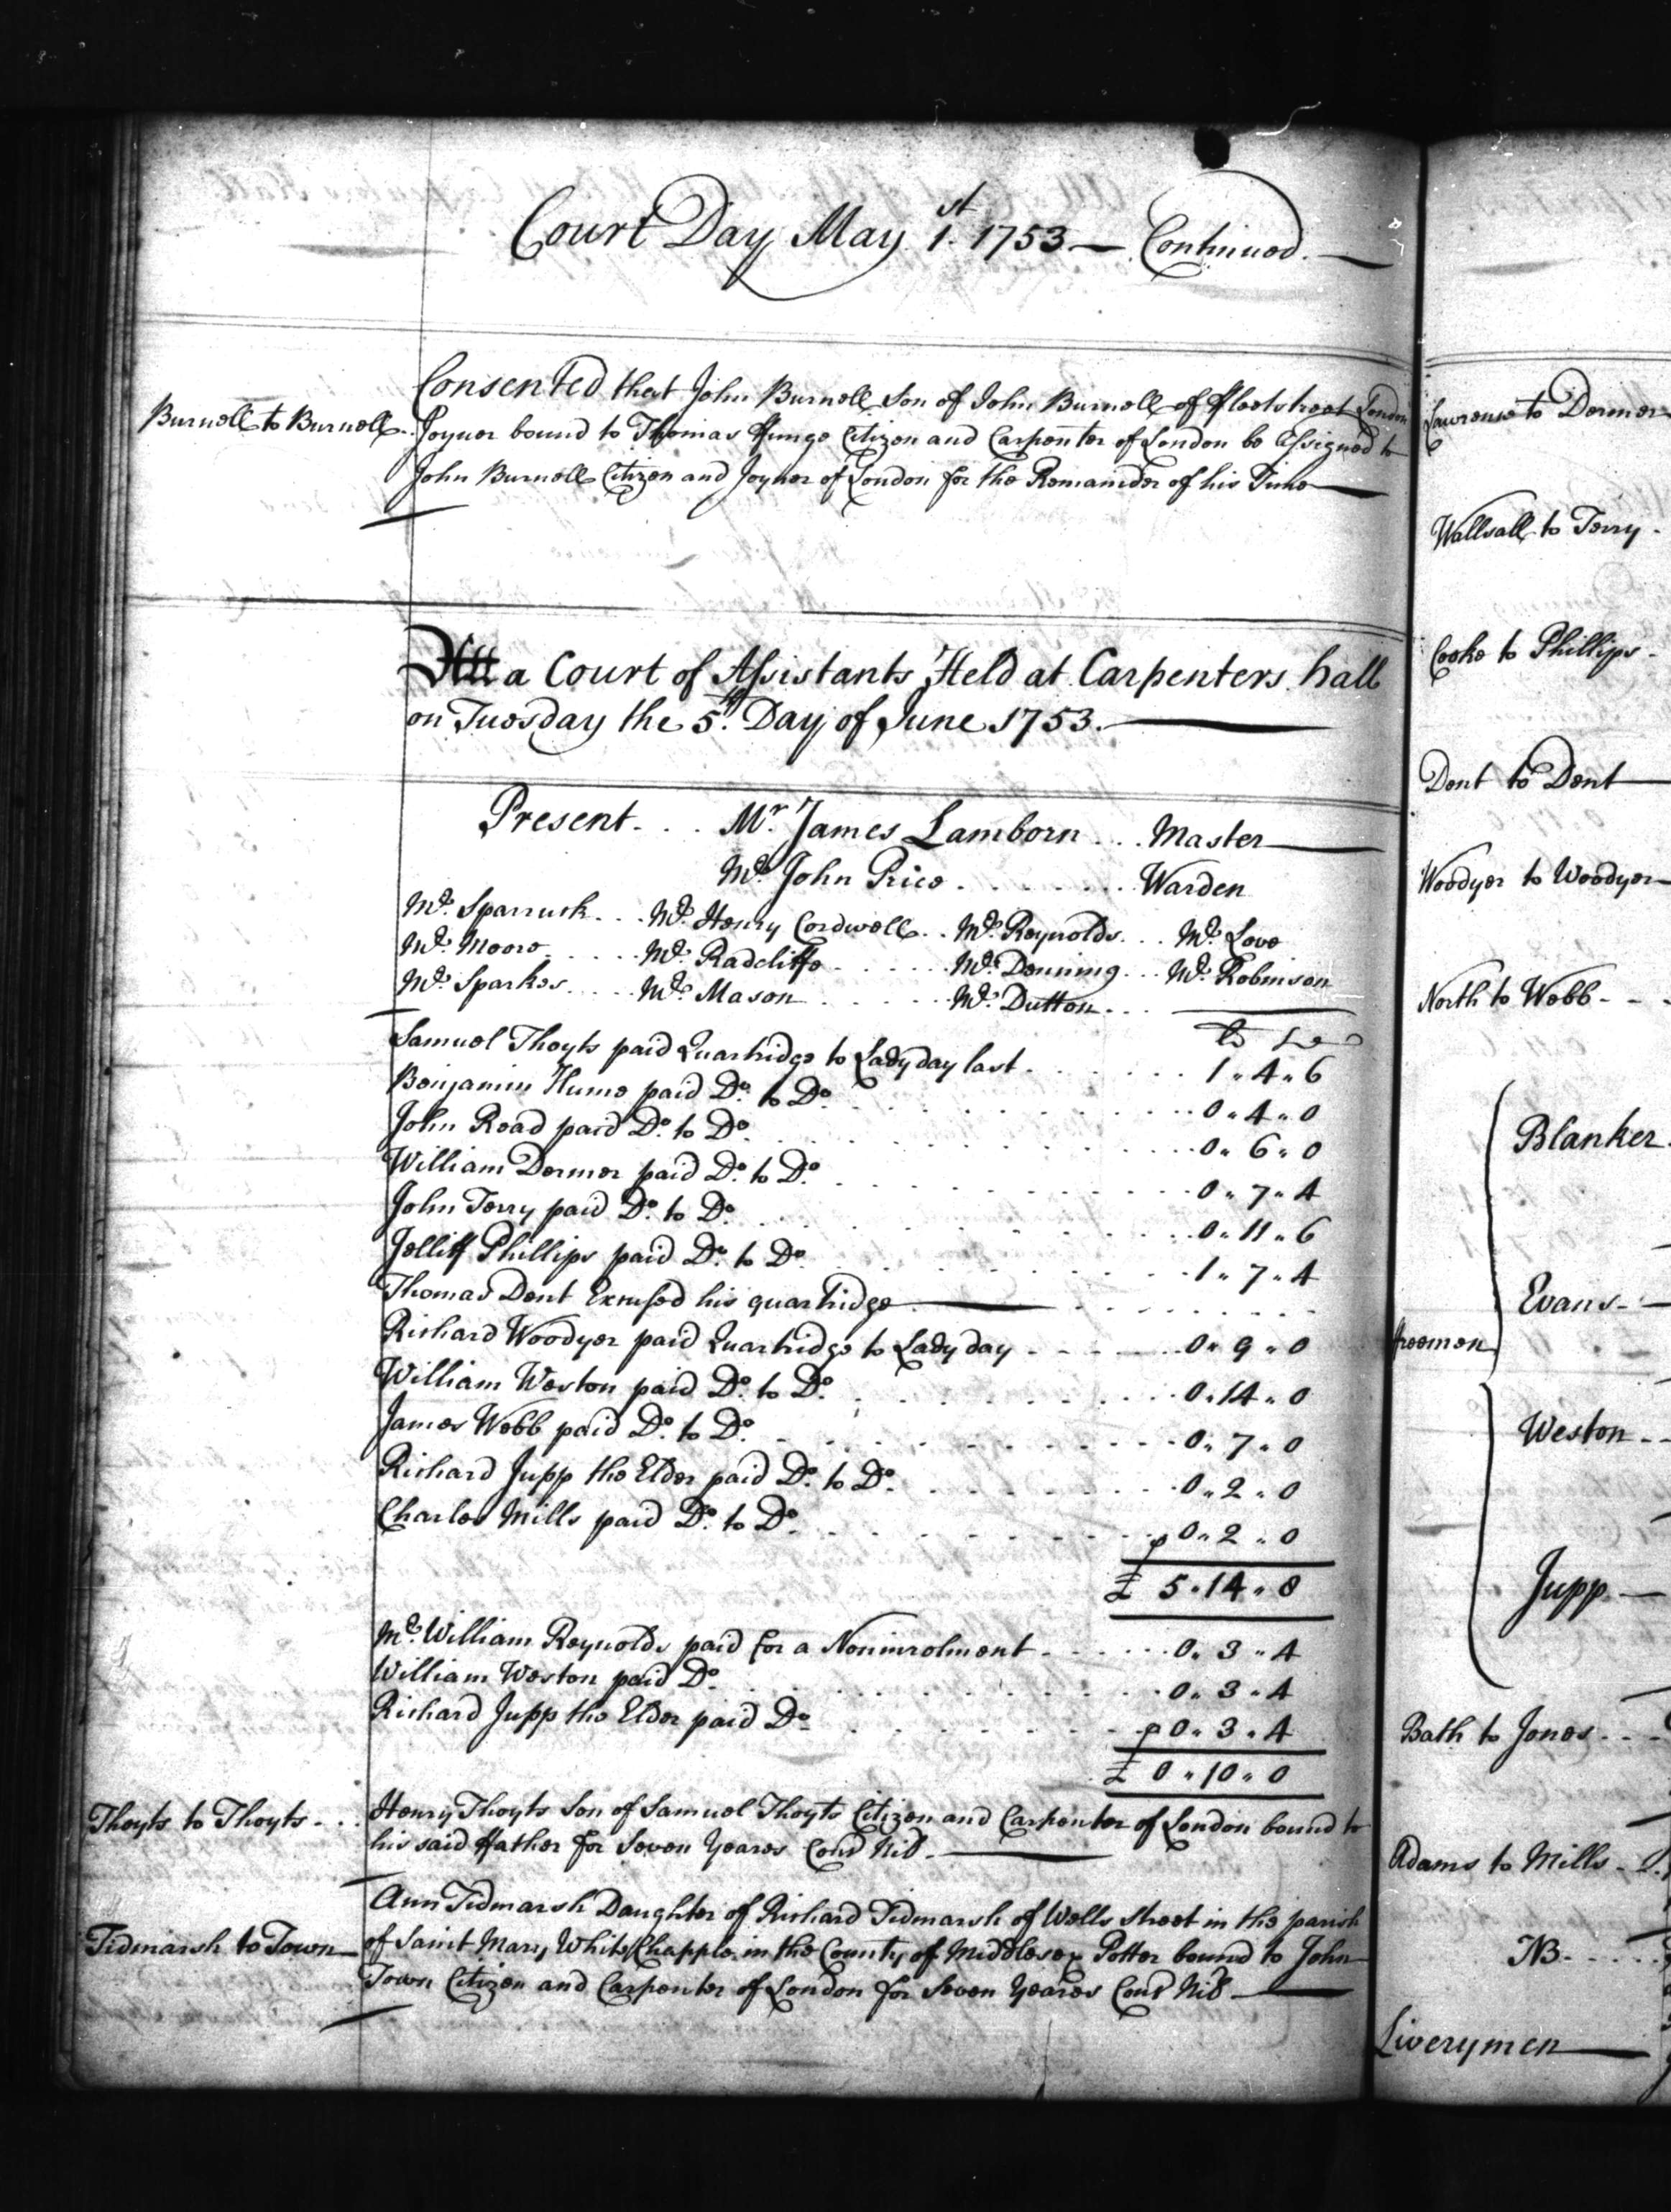 Court Day May 1st. 1753 — Continued.
Consented that John Burnell Son of John Burnell of Fleetstreet London
Burnell to Burnell
Joyner bound to Thomas Citizen and Carpenter of London be Assigned to
John Burnell Citizen and Joyner of London for the Remainder of his Time
Att a Court of Assistants Held at Carpenters hall
on Tuesday the 5th. Day of June 1753.
Present. . . Mr. James Lamborn . . . Master
Mr. John Price . . . . . . . Warden
Mr. Sparruck . . . Mr. Henry Cordwell . . Mr. Reynolds . . . Mr. Love
Mr. Moore . . . . . Mr. Radcliffe . . . . . . Mr. Denning . . . Mr. Robinson
Mr. Sparkes . . . . Mr. Mason . . . . . . . Mr. Dutton . . .
Samuel Thoyts paid Quartridge to Lady day last . . . . . . . 1 " 4 " 6
Benjamin Hume paid Do. to Do. . . . . . . . 0 " 4 " 0
John Read paid Do. to Do. . . . . . . . 0 " 6 " 0
William Dermer paid Do. to Do. . . . . . . . 0 " 7 " 4
John Terry paid Do. to Do. . . . . . . . 0 " 11 " 6
Jelliff Phillips paid Do. to Do. . . . . . . . 1 " 7 " 4
Thomas Dent Excused his quartridge
Richard Woodyer paid Quartridge to Lady day . . . . . . 0 " 9 " 0
William Weston paid Do. to Do. . . . . . . . 0 " 14 " 0
James Webb paid Do. to Do. . . . . . . . 0 " 7 " 0
Richard Jupp the Elder paid Do. to Do. . . . . . . . 0 " 2 " 0
Charles Mills paid Do. to Do. . . . . . . . 0 " 2 " 0
£ 5 " 14 " 8
Mr. William Reynolds paid for a Noninrolment . . . . . . 0 " 3 " 4
William Weston paid Do. . . . . . . . 0 " 3 " 4
Richard Jupp the Elder paid Do. . . . . . . . 0 " 3 " 4
£ 0 " 10 " 0
Thoyts to Thoyts . . .
Henry Thoyts Son of Samuel Thoyts Citizen and Carpenter of London bound to
his said Father for Seven Yeares Cons Nil.
Ann Tidmarsh Daughter of Richard Tidmarsh of Wells Street in the parish
Tidmarsh to Town
of Saint Mary White Chapple in the County of Middlesex Potter bound to John
Town Citizen and Carpenter of London for Seven Yeares Cons Nil
Lawrence to Dermer
Wallsall to Terry
Cooke to Phillips
Dent to Dent
Woodyer to Woodyer
North to Webb
Blanker
Evans
freemen
Weston
Jupp
Bath to Jones
Adams to Mills
NB
Liverymen